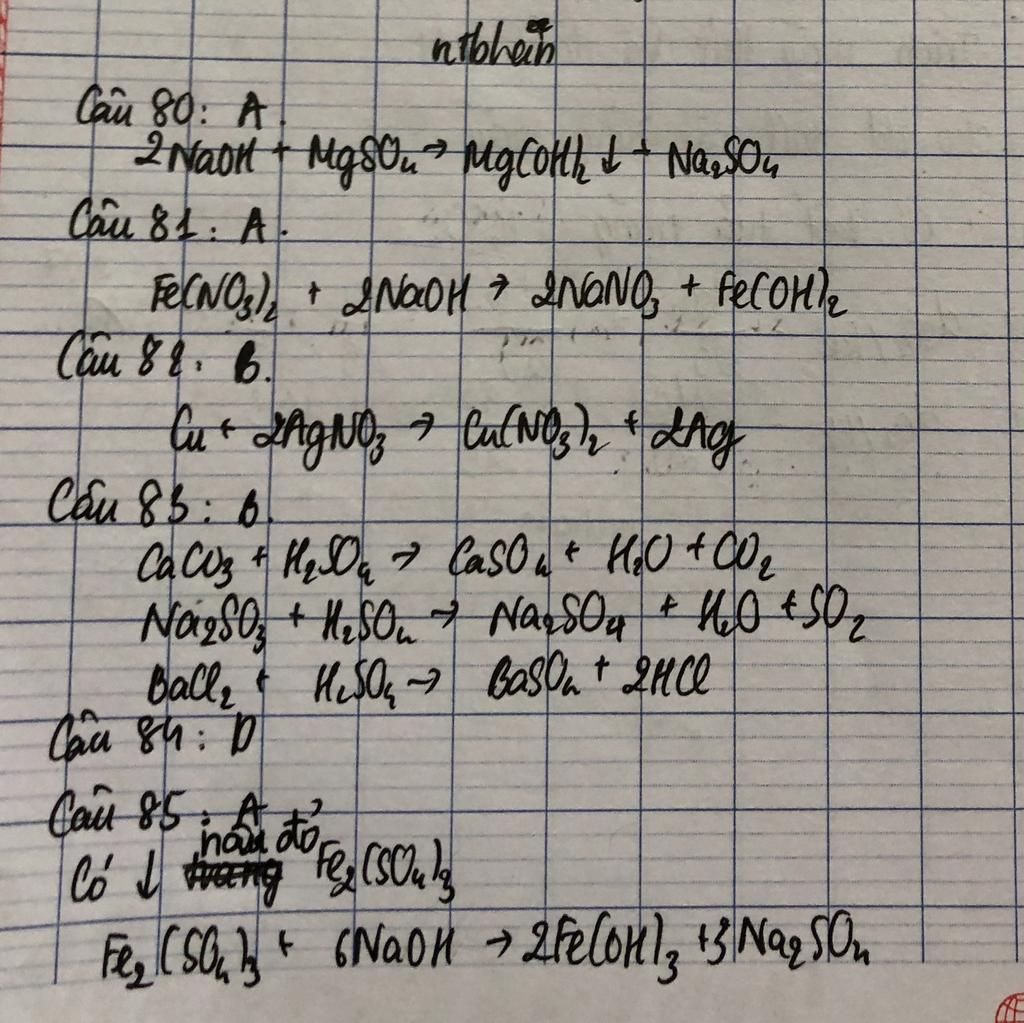 ntbhein
Câu 80: A.
2NaOH + MgSO4 → Mg(OH)2 ↓ + Na2SO4
Câu 81: A.
Fe(NO3)2 + 2NaOH → 2NaNO3 + Fe(OH)2
Câu 82: B.
Cu + 2AgNO3 → Cu(NO3)2 + 2Ag
Câu 83: B.
CaCO3 + H2SO4 → CaSO4 + H2O + CO2
Na2SO3 + H2SO4 → Na2SO4 + H2O + SO2
BaCl2 + H2SO4 → BaSO4 + 2HCl
Câu 84: D
Câu 85: A
Có ↓ nâu đỏ Fe2(SO4)3
Fe2(SO4)3 + 6NaOH → 2Fe(OH)3 + 3Na2SO4